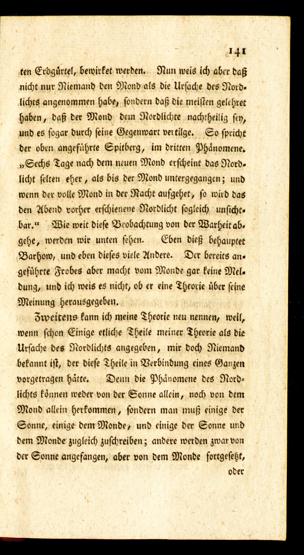 141
ten Erdgürtel, bewirket werden. Nun weis ich aber daß
nicht nur Niemand den Mond als die Ursache des Nord-
lichts angenommen habe, sondern daß die meisten gelehret
haben, daß der Mond dem Nordlichte nachtheilig sey,
und es sogar durch seine Gegenwart vertilge. So spricht
der oben angeführte Spitberg, im dritten Phänomene.
„Sechs Tage nach dem neuen Mond erscheint das Nord-
licht selten eher, als bis der Mond untergegangen; und
wenn der volle Mond in der Nacht aufgehet, so wird das
den Abend vorher erschienene Nordlicht sogleich unsicht-
bar.“ Wie weit diese Beobachtung von der Warheit ab-
gehe, werden wir unten sehen. Eben dieß behauptet
Barhow, und eben dieses viele Andere. Der bereits an-
geführte Frobes aber macht vom Monde gar keine Mel-
dung, und ich weis es nicht, ob er eine Theorie über seine
Meinung herausgegeben.
Zweitens kann ich meine Theorie neu nennen, weil,
wenn schon Einige etliche Theile meiner Theorie als die
Ursache des Nordlichts angegeben, mir doch Niemand
bekannt ist, der diese Theile in Verbindung eines Ganzen
vorgetragen hätte. Denn die Phänomene des Nord-
lichts können weder von der Sonne allein, noch von dem
Mond allein herkommen, sondern man muß einige der
Sonne, einige dem Monde, und einige der Sonne und
dem Monde zugleich zuschreiben; andere werden zwar von
der Sonne angefangen, aber von dem Monde fortgesetzt,
oder